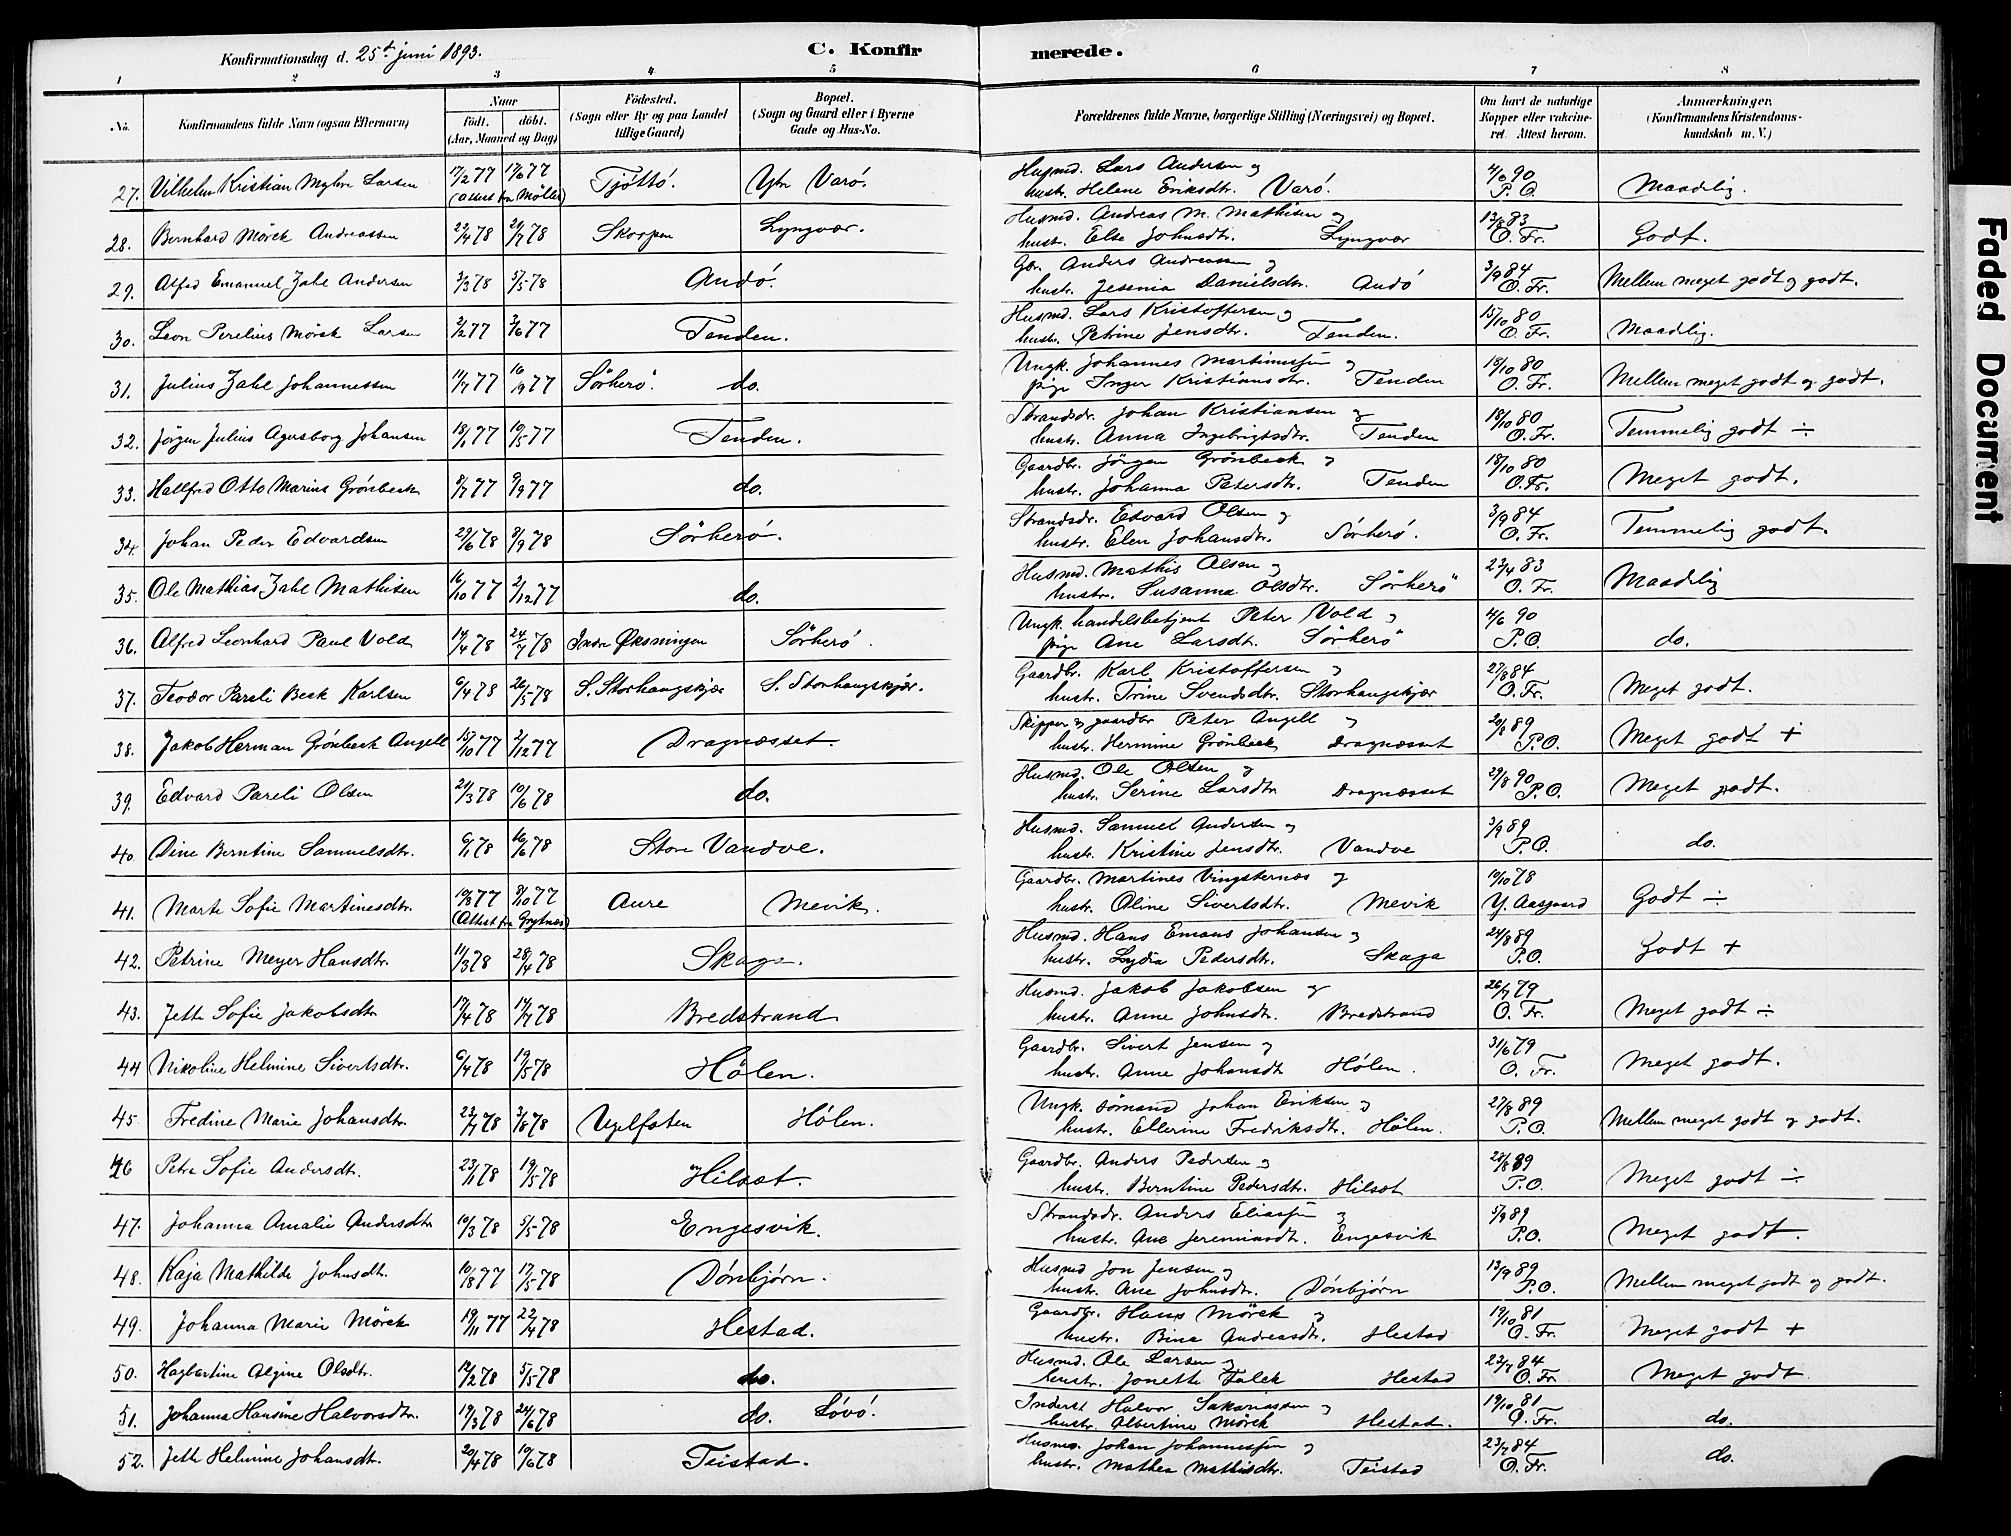 Konfirmationsdag d. 25de juni 1893.
C. Konfirmerede.
1 2 3 4 5 6 7 8
No. Konfirmandens fulde Navn (ogsaa Efternavn) Naar født. døbt. (Aar, Maaned og Dag) Fødested. (Sogn eller By og paa Landet tillige Gaard) Bopæl. (Sogn og Gaard eller i Byerne Gade og Hus-No. Forældrenes fulde Navne, borgerlige Stilling (Næringsvei) og Bopæl. Om havt de naturlige Kopper eller vakcineret. Attest herom. Anmærkninger. (Konfirmandens Kristendomskundskab m. V.)
27. Vilhelm Kristian Myhre Larsen 17/2 77 17/6 77 (Attest fra Møller) Tjøttø. Ytr Varø. Husmd. Lars Andersen og hustr. Helene Eriksdtr. Varø. 4/6 90 P. O. Maadlig.
28. Bernhard Mörck Andreassen 22/4 78 21/7 78 Skorpen Lyngvær. Husmd. Andreas M. Mathisen og hustr. Else Johnsdtr. Lyngvær 13/8 83 O. Fr. Godt.
29. Alfred Emanuel Zahl Andersen 3/3 78 5/5 78 Andø. Gbr. Anders Andreassen og hustr. Jesenia Danielsdtr. Andø 3/9 84 O. Fr. Mellem meget godt og godt.
30. Leon Perelius Mörck Larsen 2/2 77 3/6 77 Tenden. Husmd. Lars Kristoffersen og hustr. Petrine Jensdtr. Tenden. 15/10 80 O. Fr. Maadlig.
31. Julius Zahl Johannessen 11/7 77 16/9 77 Sörherö. do. Ungk. Johannes Martinussen og pige Inger Kristiansdtr. Tenden 18/10 80 O. Fr. Mellem meget godt og godt.
32. Jörgen Julius Agersborg Johansen 18/1 77 10/5 77 Tenden. Strandsdr. Johan Kristiansen og hustr. Anna Ingebrigtsdtr. Tenden 18/10 80 O. Fr. Temmelig godt ÷
33. Hallfred Otto Marius Grönbeck 8/7 77 9/9 77 do. Gaardbr. Jörgen Grönbeck og hustr. Johanna Petersdtr. Tenden 18/10 80 O. Fr. Meget godt.
34. Johan Peder Edvardsen 29/6 78 8/9 78 Sörherö. Strandsdr. Edvard Olsen og hustr. Elen Johansdtr. Sörherö. 3/9 84 O. Fr. Temmelig godt.
35. Ole Mathias Zahl Mathisen 16/10 77 2/12 77 do. Husmd. Mathis Olsen og hustr. Susanna Olsdtr. Sörherö 23/4 83 O. Fr. Maadelig
36. Alfred Leonhard Paul Vold 14/4 78 24/7 78 Indre Øksningen Sörherö. Ungk. handelsbetjent Peter Vold og pige Ane Larsdtr. Sörherö 4/6 90 P.O. do.
37. Teodor Pareli Beck Karlsen 6/4 78 26/5 78 S. Storhaugskjær S. Storhaugskjær. Gaardbr. Karl Kristoffersen og hustr. Trine Svendsdtr. Storhaugskjær 27/8 84 O. Fr. Meget godt.
38. Jakob Herman Grönbeck Angell 15/10 77 2/12 77 Dragnæsset. Skipper og gaardbr Peter Angell og hustr. Hermine Grönbeck Dragnæsset 20/8 89 P.O. Meget godt +
39. Edvard Pareli Olsen 21/3 78 10/6 78 do. Husmd. Ole Olsen og hustr. Serine Larsdtr Dragnæsset 29/8 90 P.O. Meget godt.
40. Dine Berntine Samuelsdtr. 6/1 78 16/6 78 Store Vandve. Husmd. Samuel Andersen og hustr. Kristine Jensdtr. Vandve 3/9 89 P.O. do.
41. Marte Sofie Martinesdtr. 19/8 77 8/10 77 (Attest fra Grytnes) Aure Mevik. Gaardbr. Martines Vingsternæs og hustr. Oline Sivertsdtr. Mevik 10/10 78 Y. Aasgaard Godt ÷
42. Petrine Meyer Hansdtr. 11/3 78 28/4 78 Skaga. Husmd. Hans Emans Johansen og hustr. Lydia Pedersdtr. Skaga 24/8 89 P.O. Godt +
43. Jette Sofie Jakobsdtr 17/4 78 14/7 78 Bredstrand Husmd. Jakob Jakobsen og hustr. Anne Johnsdtr. Bredstrand 26/7 79 O. Fr. Meget godt ÷
44 Nikoline Helmine Sivertsdtr. 6/4 78 19/5 78 Hölen. Gaardbr. Sivert Jensen og hustr. Anne Johansdtr Hölen. 31/6 79 O. Fr. Meget godt.
45. Fredine Marie Johansdtr. 23/7 78 3/8 78 Ugelfoten Hölen. Ungk. sömand Johan Eriksen og hustr. Ellerine Fredriksdtr. Hölen. 27/8 89 P.O. Mellem meget godt og godt.
46 Petra Sofie Andersdtr. 23/1 78 19/5 78 Hilset Gaardbr. Anders Pedersen og hustr. Berntine Pedersdtr. Hilset 28/8 89 P.O. Meget godt ÷
47. Johanna Amalie Andersdtr 10/3 78 5/5 78 Engesvik. Strandsdr. Anders Eliassen og hustr. Ane Jeremiasdtr. Engesvik 5/9 89 P.O. Meget godt.
48. Kaja Mathilde Johnsdtr. 10/8 77 17/5 78 Dönbjörn. Husmd Jon Jensen og hustr. Ane Johnsdtr. Dönbjörn 13/9 89 P.O. Mellem meget godt og godt.
49. Johanna Marie Mörck 19/11 77 22/4 78 Hestad. Gaardbr. Hans Mörck og hustr. Bina Andreasdtr. Hestad 19/10 81 O. Fr. Meget godt +
50. Hagbartine Algine Olsdtr. 12/2 78 5/5 78 do. Husmd. Ole Larsen og hustr. Jonette Falck Hestad 23/7 84 O. Fr. Meget godt
51. Johanna Hansine Halvorsdtr. 19/3 78 24/6 78 do. Lövö. Inderst Halvor Sakariassen og hustr. Albertine Mörck Hestad. 19/10 81 O. Fr. do.
52. Jette Helmine Johansdtr. 20/4 78 10/6 78 Teistad. Husmd. Johan Johannessen og hustr. Mathea Mathisdtr. Teistad 23/7 84 O. Fr. do.
Faded Document